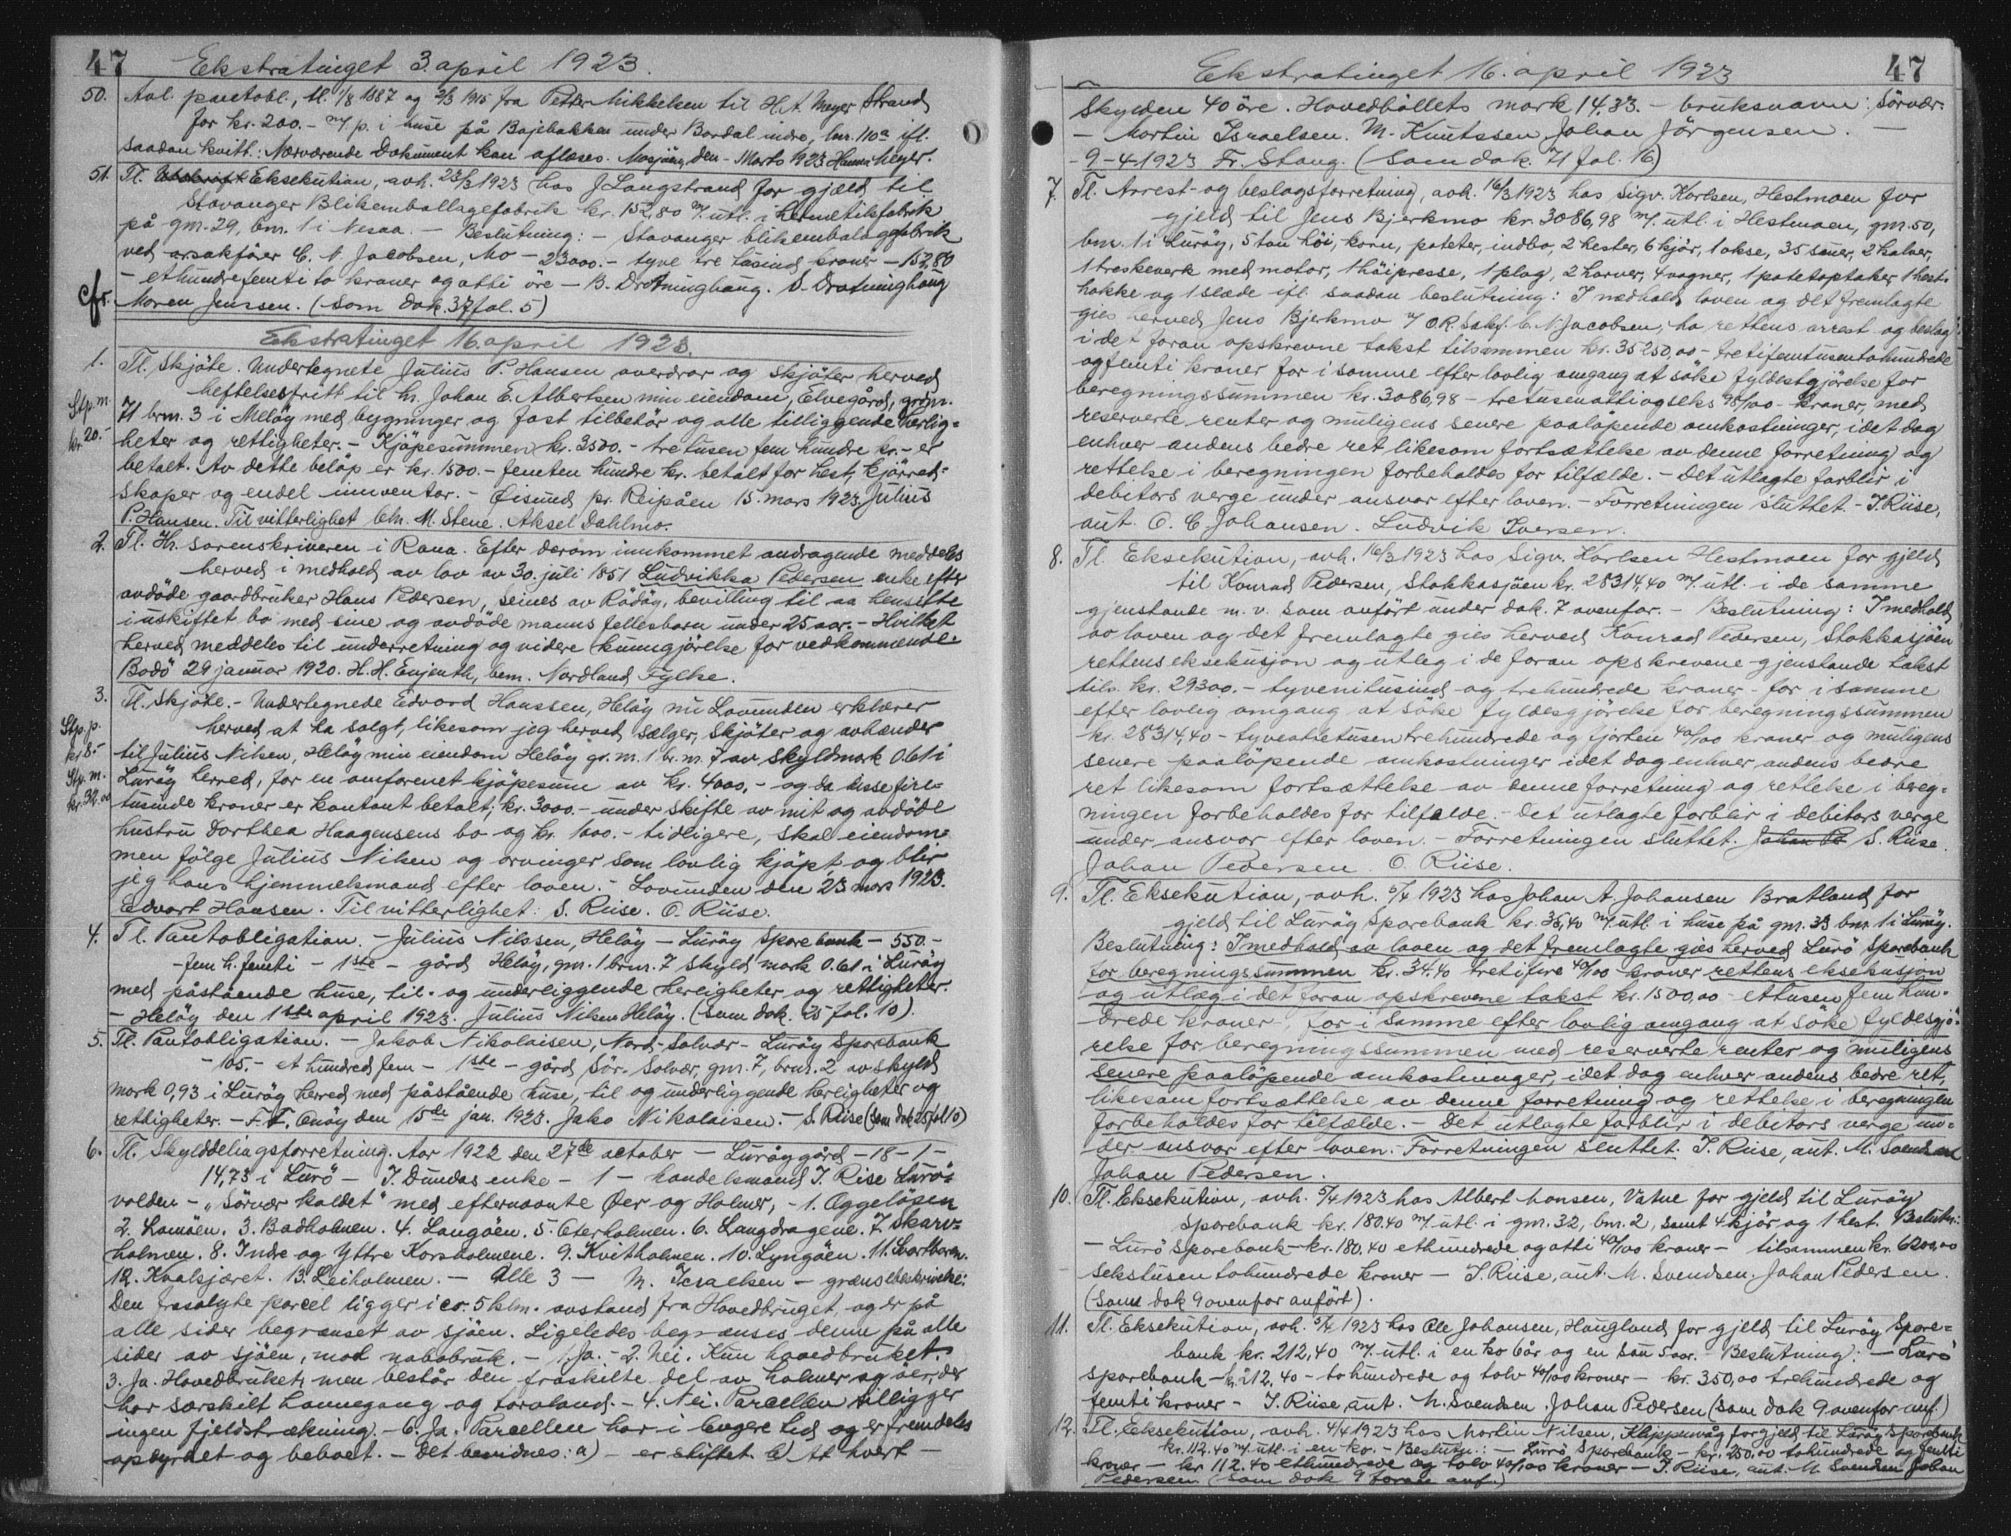 47 Ekstratinget 3. april 1923.
50. Avl. pantobl., tl. 1/8 1887 og 2/3 1915 fra Petter Mikkelsen til H. A. Meyer Strand
for kr. 200.- m/ p. i huse på Bajebakken under Bardal indre, bnr. 110a ifl.
saadan kvitt.: Nærværende Dokument kan aflæses. Mosjøen, den - Marts 1923 Hans Meyer.
51. Tl. Eksekution, avh. 23/3 1923 hos J Langstrand for gjæld til
Stavanger Blikemballagefabrik kr. 152,80 m/ utl. i hermetikfabrik
på gnr. 29, bnr. 1 i Nesna. - Beslutning: - Stavanger blikembalagefabrik
ved orsakfører C. N. Jacobsen, Mo - 23000.- tyve tre tusind kroner - 152,80
- ethundrefemti to kroner og otti öre - B. Drotninghaug. S. Drotninghaug
cfr. Maren Jenssen. (Som dok. 37 fol. 5)
Ekstratinget 16. april 1923.
1. Tl. Skjöte. Undertegnete Julius P. Hansen overdrar og skjöter herved
heftelsesfritt til hr. Johan E. Albertsen min eiendom, Elvegård, grdn.
Stp. m. 71 brnr. 3 i Melöy med bygninger og fast tilbehör og alle tilliggende herlig=
kr. 20.- heter og rettigheter. - Kjöpesummen kr. 3500.- tretusen fem hundre kr. - er
betalt. Av dette belöp er kr. 1500.- femten hundre kr. betalt for hest, kjörred=
skaper og endel inventar. - Öisund pr. Reipåen 15. mars 1923 Julius
P. Hansen. Til vitterlighet Chr. M. Stene. Aksel Dahlmo.
2. Tl. Hr. sorenskriveren i Rana. Efter derom innkommet andragende meddeles
herved i medhold av lov av 30. juli 1851 Ludvikka Pedersen enke efter
avdöde gaardbruker Hans Pedersen, Seines av Rödöy, bevilling til aa hensitte
i uskiftet bo med sine og avdöde manns fellesbarn under 25 aar. - Hvilket
herved meddeles til underretning og videre kunngjörelse for vedkommende.
Bodö 29 januar 1920. H. H. Enjenth, bem. Nordland Fylke.
3. Tl. Skjöte. - Undertegnede Edvard Hanssen, Helöy nu Lovunden erklærer
Stp. p. herved at ha solgt, likesom jeg herved sælger, skjöter og avhænder
kr 8.- til Julius Nilsen, Helöy min eiendom Helöy gr. nr. 1 br. nr. 7 av skyldmark 0.61 i
Stp. m. Luröy herred, for en omforenet kjöpesum av kr. 4000,- og da disse fire-
kr. 32.00 tusinde kroner er kontant betalt, kr. 3000.- under skifte av mit og avdöde
hustru Dorthea Haagensens bo og kr. 1000.- tidligere, skal eiendom=
men fölge Julius Nilsen og arvinger som lovlig kjöpt, og blir
jeg hans hjemmelsmand efter loven. - Lovunden den 23 mars 1923.
Edvart Hansen. Til vitterlighet: S. Riise. O. Riise.
4. Tl. Pantobligation. - Julius Nilssen, Helöy - Luröy Sparebank - 550.-
- fem h. femti - 1ste - gård Helöy, gnr. 1 brnr. 7 skyld mark 0.61 i Luröy
med påstående huse, til- og underliggende herligheter og rettigheter.
- Helöy den 1ste april 1923. Julius Nilsen Helöy. (Som dok. 25 fol. 10).
5. Tl. Pantobligation. - Jakob Nikolaisen, Nord-Solvær - Luröy Sparebank
- 105.- et hundred fem - 1ste - gård Sör-Solvær, gnr. 7, brnr. 2 av skyld
mark 0,93 i Luröy herred med påstående huse, til og underliggende herligheter og
rettigheter. - F. T. Onöy den 15de jan. 1923. Jako Nikolaisen. - S. Riise (Som dok 25 fol 10)
6. Tl. Skylddelingsforretning. Aar 1922 den 27de october - Luröygård - 18 - 1 -
14,73 i Lurö - J. Dundas enke - 1 - handelsmand J. Riise Lurö-
volden - "Sörvær kaldet" med efternævnte Öer og Holmer, - 1. Oggelösen
2. Lamöen. 3. Badholmen. 4. Langöen. 5. Oterholmen. 6. Langdragene. 7. Skarv=
holmen. 8. Indre og Yttre Korsholmene. 9. Kvitholmen. 10. Lyngöen. 11. Svartbaren.
12. Kvalsjæret. 13. Leiholmen. - Alle 3 - M. Israelsen - grænsebeskrivelse:
Den fraskilte parcel ligger i ca. 5 klm. avstand fra Hovedbruget, og er på
alle sider begrænset av sjöen. Ligeledes begrænses denne på alle
sider av sjöen, mot nabobruk. - 1. Ja. - 2. Nei. Kun hovedbruket.
3. Ja. Hovedbruket, men består den fraskilte del av holmer og öer, der
har særskilt havnegang og torvland. - 4. Nei. Parcellen tilligger
ingen fjeldstrækning. - 6. Ja. Parcellen har i lengere tid og er fremdeles
opdyrket og beboet. - Det bevidnes: a) - er skiftet. b) At hvert -
Ekstratinget 16. april 1923 47
Skylden 40 öre. Hovedböllets mark 14.33. - bruksnavn: Sörvær.
- Martin Israelsen. M. Knutssen. Johan Jörgensen. -
- 9-4-1923 Fr. Stang. (Som dok. 71 fol. 16)
7. Tl. Arrest- og beslagsforretning, avh. 16/3 1923 hos Sigv. Karlsen, Hestmoen for
gjeld til Jens Bjerkmo kr. 3086,98 m/ utl. i Hestmoen, gnr. 50,
bnr. 1 i Luröy, 5 ton höi, korn, poteter, indbo, 2 hester, 6 kjör, 1 okse, 35 sauer, 2 kalver,
1 treskeverk med motor, 1 höipresse, 1 plog, 2 harver, 4 vogner, 1 potetoptaker, 1 hest-
hakke og 1 slæde ifl. saadan beslutning: I medhold loven og det fremlagte
gies herved Jens Bjerkmo v/ O.R. Sakf. C. N. Jacobsen, Mo rettens arrest og beslag
i de foran opskrevne takst tilsammen kr. 35250,00 - tretifemtusentohundrede
ogfemti kroner for i samme efter lovlig omgang at söke fyldestgjörelse for
beregningssummen kr. 3086,98 - tretusenottiogseks 98/100 - kroner, med
reserverte renter og muligens senere paalöpende omkostninger, idet dog
enhver andens bedre ret likesom fortsættelse av denne forretning og
rettelse i beregningen forbeholdes for tilfælde. - Det utlagte forblir i
debitors verge under ansvar efter loven. - Forretningen sluttet. - J. Riise,
aut. O. C. Johansen. Ludvik Iversen.
8. Tl. Eksekution, avh. 16/3 1923 hos Sigv. Karlsen Hestmoen for gjeld
til Konrad Pedersen, Stokkasjöen kr. 28314,40 m/ utl. i de samme
gjenstande m. v. som anfört under dok. 7 ovenfor. - Beslutning: I medhold
av loven og det fremlagte gies herved Konrad Pedersen, Stokkasjöen
rettens eksekusjon og utleg i de foran opskrevne gjenstande takst
tils. kr. 29300.- tyvenitusind og trehundrede kroner - for i samme
efter lovlig omgang at söke fyldesgjörelse for beregningssummen
kr. 28314,40 - tyveottetusentrehundrede og fjorten 40/100 kroner og muligens
senere paalöpende omkostninger idet dog enhver andens bedre
ret likesom fortsættelse av denne forretning og rettelse i bereg=
ningen forbeholdes for tilfælde. - Det utlagte forblir i debitors verge
under ansvar efter loven. - Forretningen sluttet. Johan Pe S. Riise.
Johan Pedersen. O. Riise.
9. Tl. Eksekution, avh. 5/4 1923 hos Johan A. Johansen Bratland for
gjeld til Luröy Sparebank kr. 36,40 m/ utl. i huse på gnr. 33 bnr. 1 i Luröy.
Beslutning: I medhold av loven og det fremlagte gies herved Lurö Sparebank
for beregningssummen kr. 34.40 tretifire 40/100 kroner rettens eksekusjon
og utlæg i det foran opskrevne takst kr. 1500,00 - ettusen fem hun-
drede kroner, for i samme efter lovlig omgang at söke fyldesgjö-
relse for beregningssummen med reserverte renter og muligens
senere paalöpende omkostninger, idet dog enhver andens bedre ret,
likesom fortsættelse av denne forretning og rettelse i beregningen
forbeholdes for tilfælde. - Det utlagte forblir i debitors verge un-
der ansvar efter loven. Forretningen sluttet. J. Riise, aut. M. Svendsen
Johan Pedersen.
10. Tl. Eksekution, avh. 5/4 1923 hos Albert Hansen, Vatne for gjeld til Luröy
Sparebank kr. 180.40 m/ utl. i gnr. 32, bnr. 2 samt 4 kjör og 1 hest. Beslutn:
- Lurö Sparebank - kr. 180.40 ethundrede og otti 40/100 kroner - tilsammen kr. 6200,00
sekstusen tohundrede kroner - J. Riise, aut. M. Svendsen. Johan Pedersen.
(Som dok 9 ovenfor anfört).
11. Tl. Eksekution, avh. 5/4 1923 hos Ole Johansen, Haugland for gjeld til Luröy Spare=
bank kr. 212,40 m/ utl. i en ko 6 år og en sau 5 aar. - Beslutning: - Lurö
Sparebank - kr. 212,40 - tohundrede og tolv 40/100 kroner - kr. 350,00 trehundrede og
femti kroner - J. Riise, aut. M. Svendsen. Johan Pedersen (Som dok 9 ovenfor anf.)
12. Tl. Eksekution, avh. 4/4 1923 hos Martin Nilsen, Klippinvåg for gjeld til Luröy Sparebank
kr. 112.40 m/ utl. i en ko. - Beslutn.: - Lurö Sparebank - kr. 250,00 tohundrede og femti
kroner - kr 112.40 ethundrede og tolv 40/100 kroner - J. Riise, aut. M. Svendsen Johan
Pedersen (Som dok 9 foran anf.)